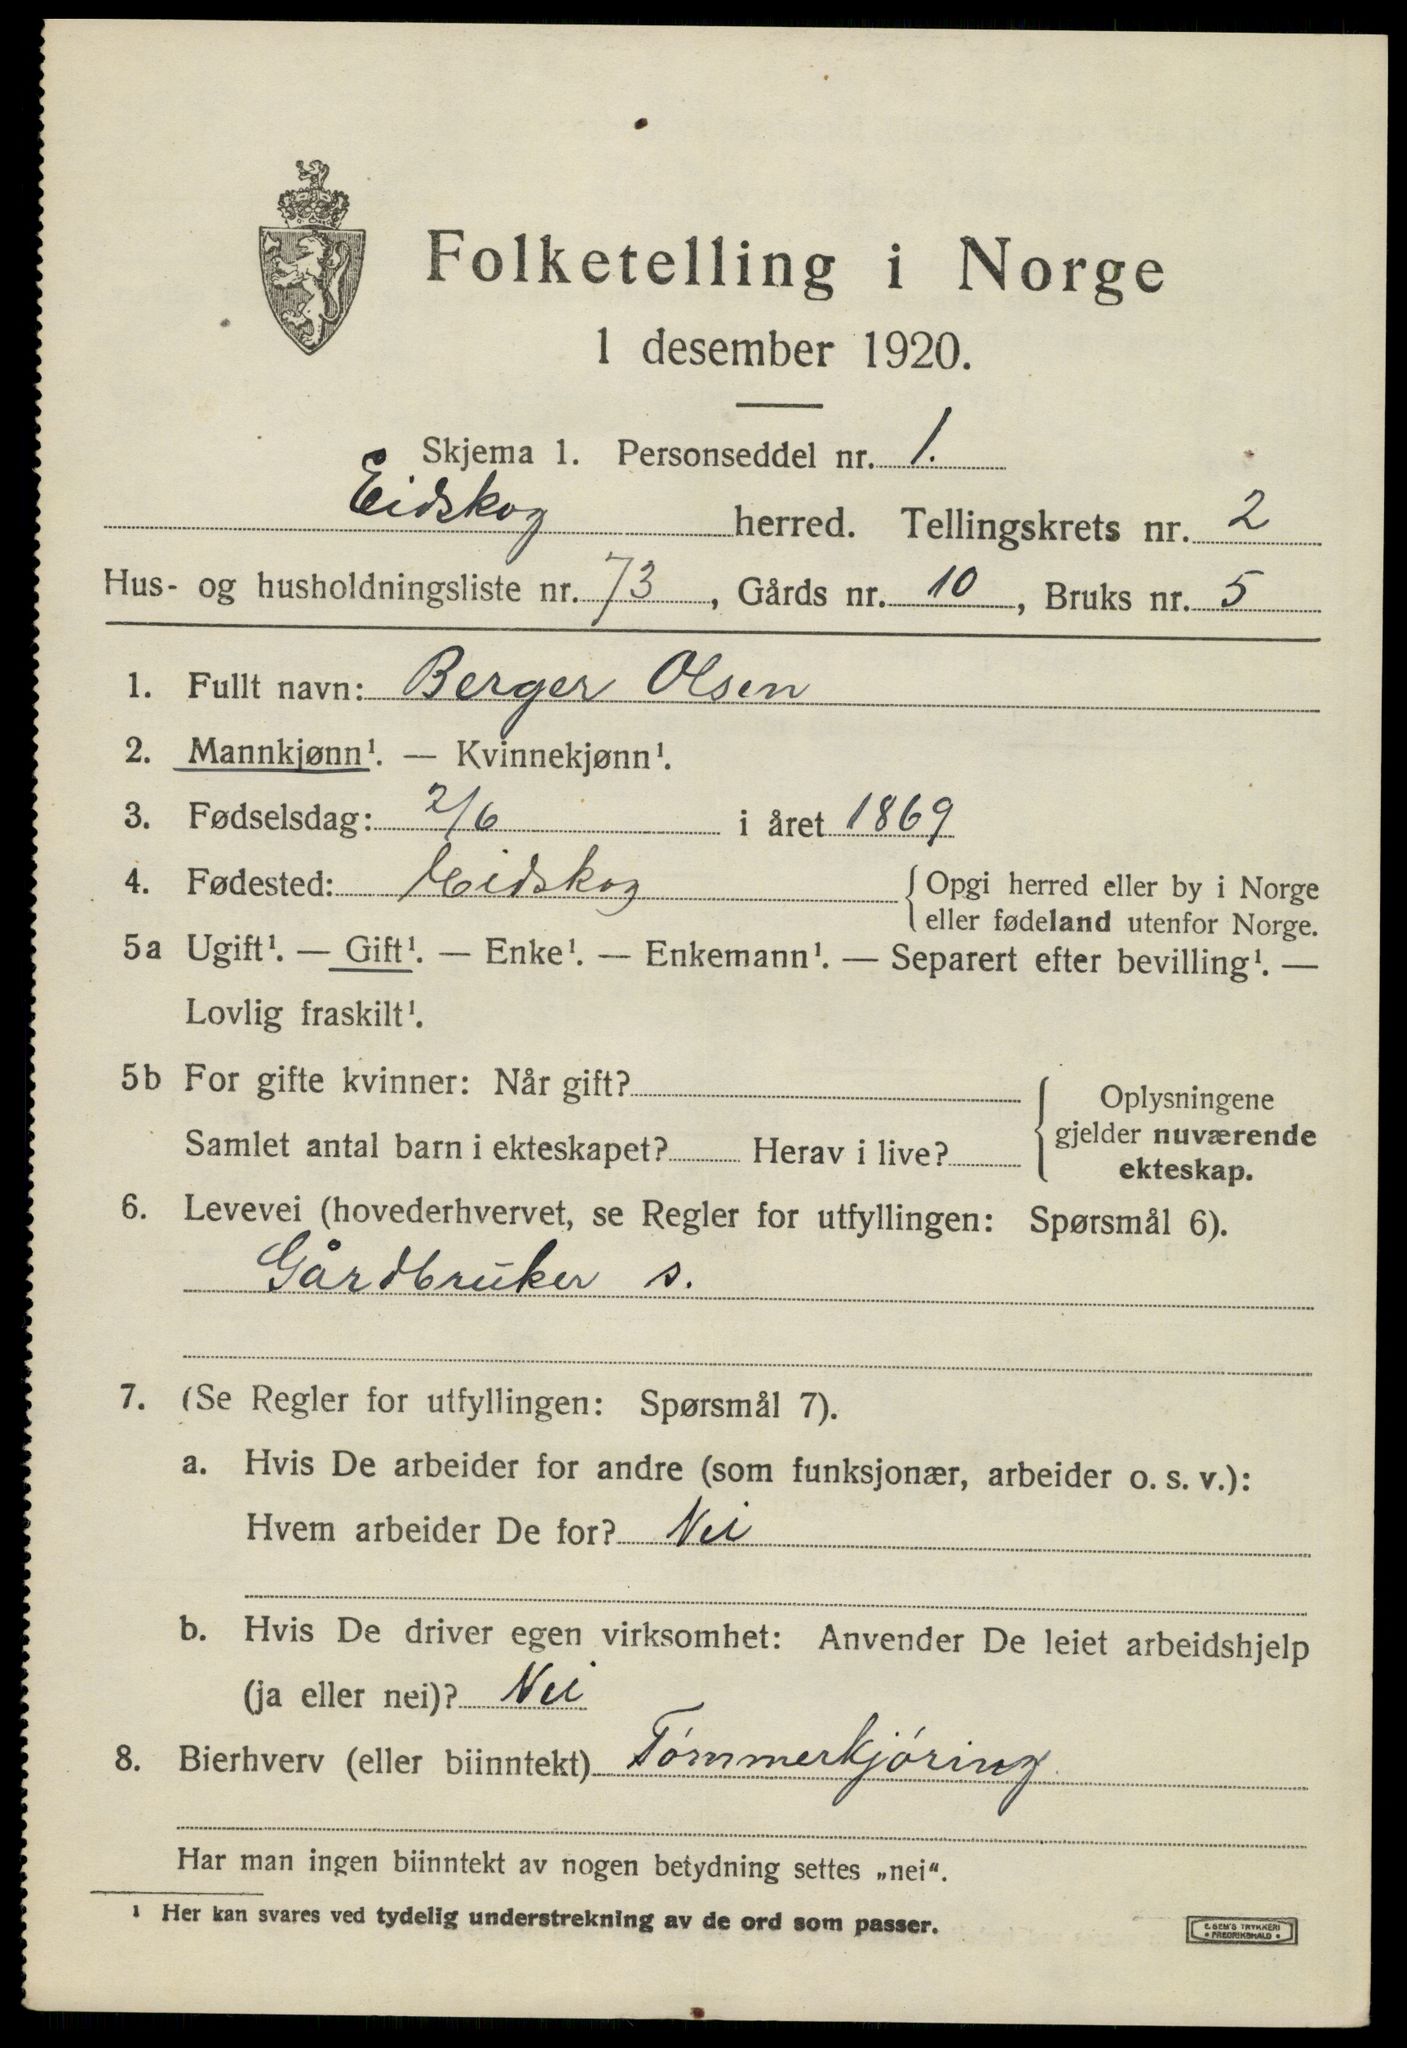 Folketelling i Norge
1 desember 1920.
Skjema 1. Personseddel nr. 1.
Eidskog herred. Tellingskrets nr. 2
Hus- og husholdningsliste nr. 73, Gårds nr. 10, Bruks nr. 5
1. Fullt navn: Berger Olsen
2. Mannkjønn¹. — Kvinnekjønn¹.
3. Fødselsdag: 2/6 i året 1869
4. Fødested: Eidskog { Opgi herred eller by i Norge
eller fødeland utenfor Norge.
5a Ugift¹. — Gift¹. — Enke¹. — Enkemann¹. — Separert efter bevilling¹. —
Lovlig fraskilt¹.
5b For gifte kvinner: Når gift? { Oplysningene
gjelder nuværende
Samlet antal barn i ekteskapet? Herav i live? ekteskap.
6. Levevei (hovederhvervet, se Regler for utfyllingen: Spørsmål 6).
Gårdbruker s.
7. (Se Regler for utfyllingen: Spørsmål 7).
a. Hvis De arbeider for andre (som funksjonær, arbeider o. s. v.):
Hvem arbeider De for? Nei
b. Hvis De driver egen virksomhet: Anvender De leiet arbeidshjelp
(ja eller nei)? Nei
8. Bierhverv (eller biinntekt) Tømmerkjøring
Har man ingen biinntekt av nogen betydning settes „nei“.
¹ Her kan svares ved tydelig understrekning av de ord som passer.
E. SEM'S TRYKKERI
• FREDRIKSHALD •